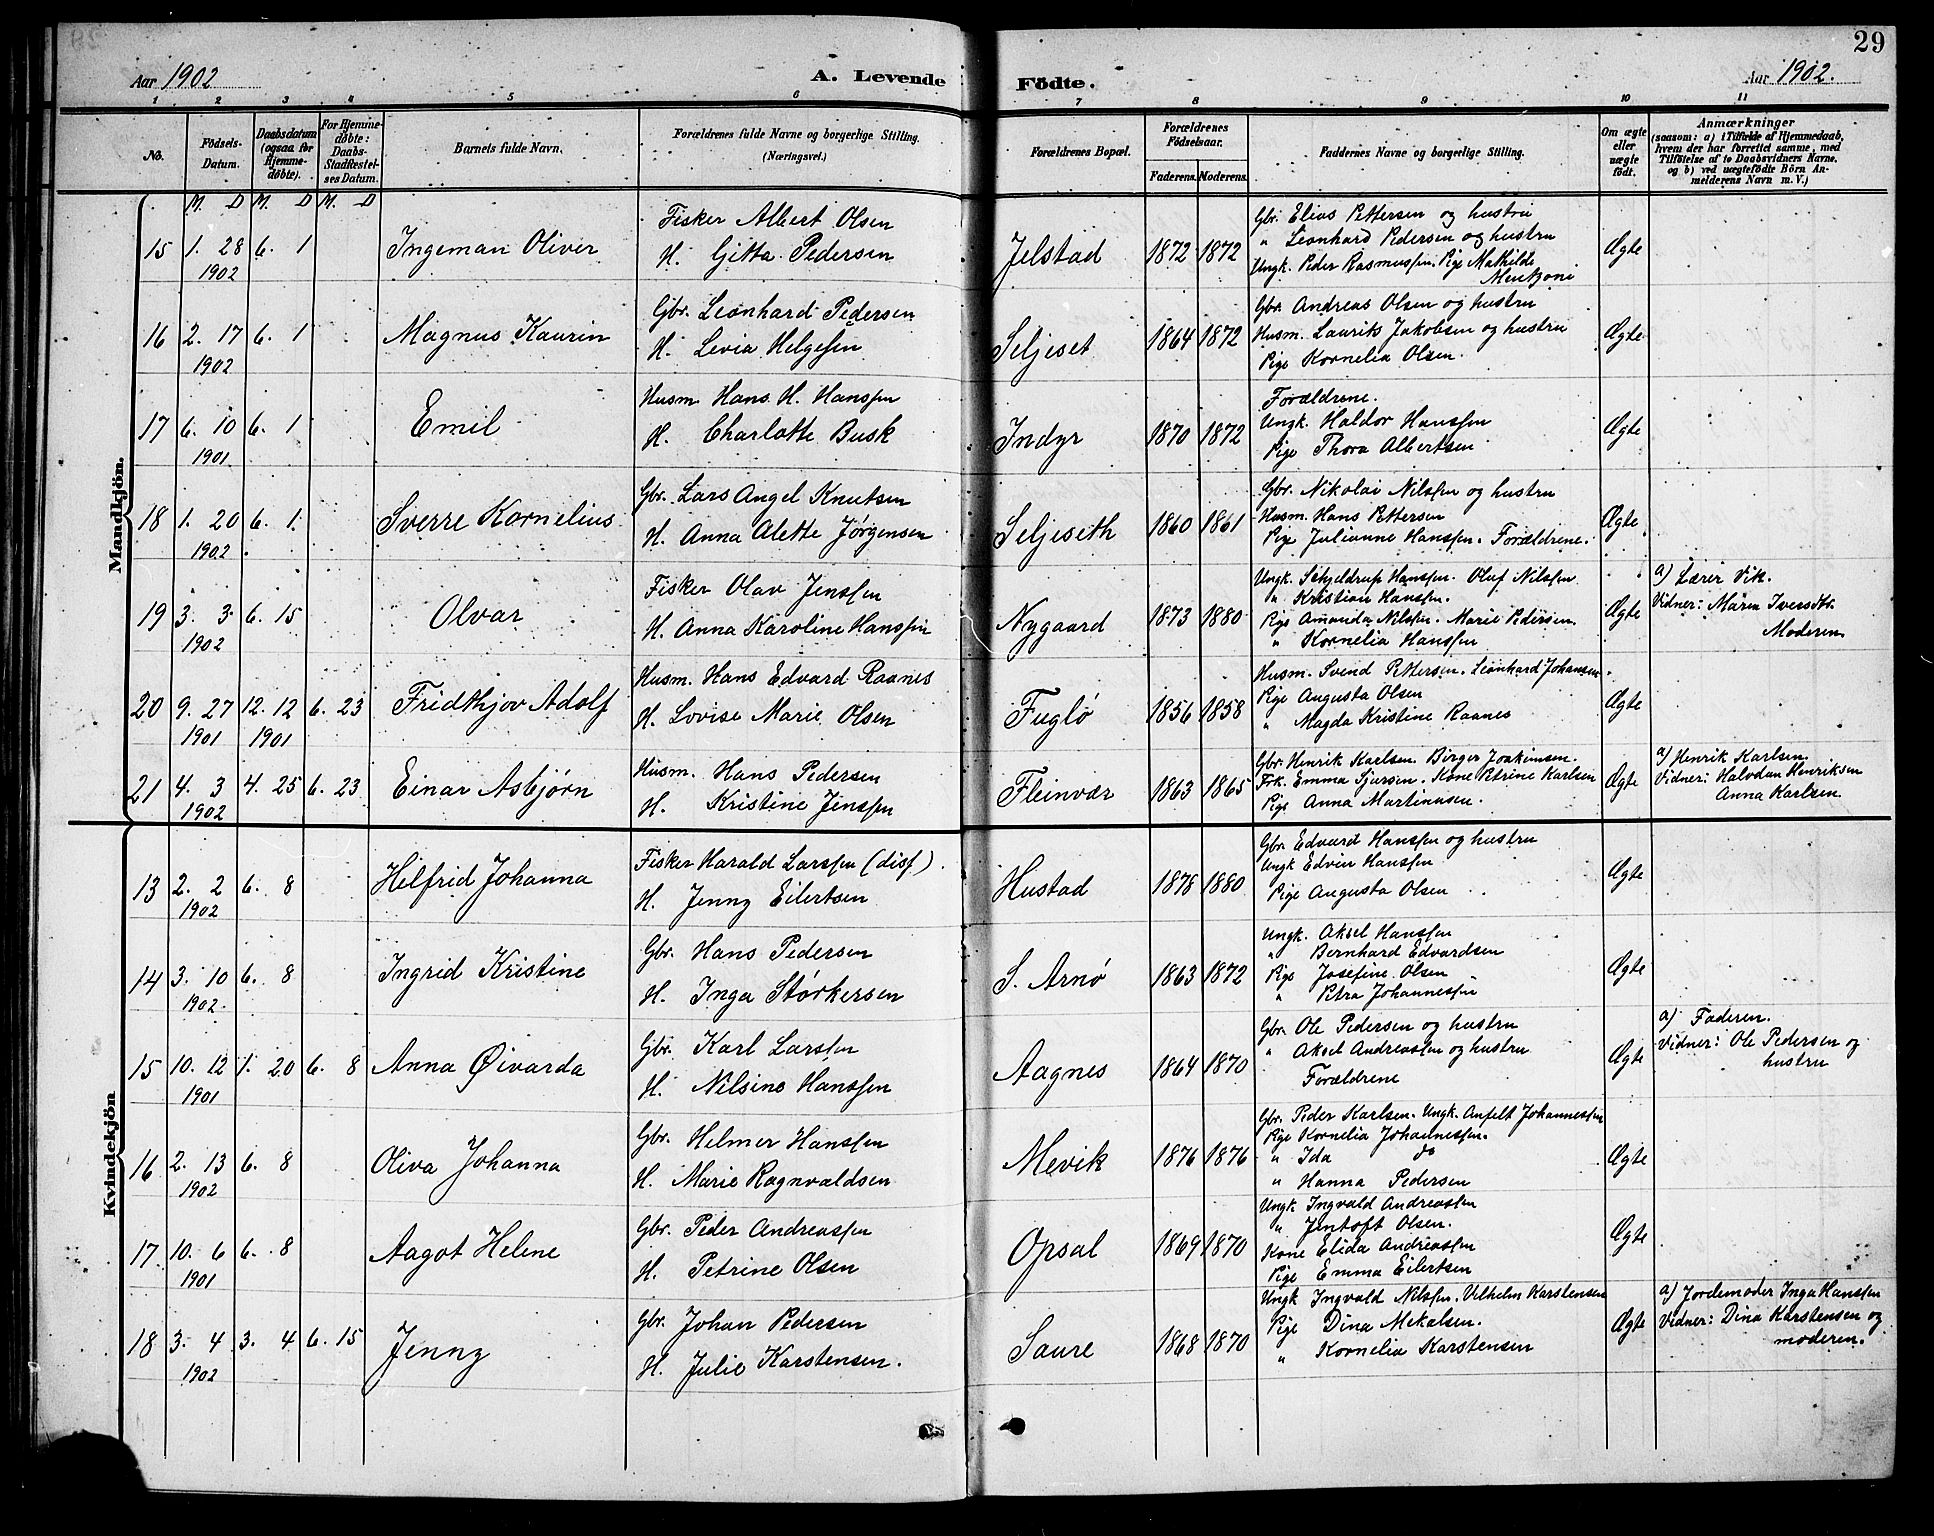 29
Aar 1902
A. Levende
Födte.
Aar 1902.
1 2 3 4 5 6 7 8 9 10 11
No.
Födsels-Datum.
Daabsdatum (ogsaa for Hjemme-döbte).
For Hjemme-döbte: Daabs-Stadfæstel-ses Datum.
Barnets fulde Navn.
Forældrenes fulde Navne og borgerlige Stilling.
(Næringsvei.)
Forældrenes Bopæl.
Forældrenes Födselsaar.
Faderens. Moderens.
Faddernes Navne og borgerlige Stilling.
Om ægte eller uægte födt.
Anmærkninger
(saasom: a) i Tilfælde af Hjemmedaab,
hvem der har forrettet samme, med
Tilföielse af to Daabsvidners Navne.
og b) ved uægtefödte Börn An-
melderens Navn m. V.)
M. D M. D M. D
Mandkjön.
15 1. 28 6. 1 Ingeman Oliver
1902
Fisker Albert Olsen
H. Gitta Pedersen
Jelstad 1872 1872
Gbr. Elias Pettersen og hustru
" Leonhard Pedersen og hustru
Ungk. Peder Rasmussen. Pige Mathilde
Mentzoni
Ægte
16 2. 17 6. 1 Magnus Kaurin
1902
Gbr. Leonhard Pedersen
H. Levia Helgesen
Seljeset 1864 1872
Gbr. Andreas Olsen og hustru
Husm. Laurits Jakobsen og hustru
Pige Kornelia Olsen.
Ægte
17 6. 10 6. 1 Emil
1901
Husm Hans H. Hanssen
H. Charlotte Busk
Indyr 1870 1872
Forældrene.
Ungk. Haldor Hanssen
Pige Thora Albertsen
Ægte
18 1. 20 6. 1. Sverre Kornelius
1902
Gbr. Lars Angel Knutsen
H. Anna Alette Jørgensen
Seljeseth 1860 1861
Gbr. Nikolai Nilssen og hustru
Husm. Hans Pettersen
Pige Julianne Hanssen. Forældrene.
Ægte
19 3. 3. 6. 15 Olvar
1902
Fisker Olav Jenssen
H. Anna Karoline Hanssen
Nygaard 1873 1880
Ungk. Schjeldrup Hanssen. Oluf Nilssen.
" Kristian Hanssen.
Pige Amanda Nilsen. Marie Pedersen.
" Kornelia Hanssen
Ægte
a) Lærer Vik.
Vidner: Maren Iversdtr.
Moderen
20 9. 27 12. 12 6. 23 Fridthjov Adolf
1901 1901
Husm. Hans Edvard Raanes
H. Lovise Marie Olsen
Fuglø 1856 1858
Husm. Svend Pettersen. Leonhard Johansen.
Pige Augusta Olsen
" Magda Kristine Raanes
Ægte
21 4. 3 4. 25 6. 23 Einar Asbjørn
1902
Husm. Hans Pedersen
H. Kristine Jenssen
Fleinvær 1863 1865
Gbr. Henrik Kaelsen. Birger Joakimsen.
Frk. Emma Sjursen. Kone Petrine Karlsen
Pige Anna Martinusen.
Ægte
a) Henrik Karlsen.
Vidner: Halvdan Henriksen
Anna Karlsen.
Kvindekjön
13 2. 2 6. 8 Hilfrid Johanna
1902
Fisker Harald Larssen (diss).
H. Jenny Eilertsen
Hustad 1878 1880
Gbr. Edvard Hanssen og hustru
Ungk Edvin Hanssen
Pige Augusta Olsen
Ægte
14 3. 10 6. 8 Ingrid Kristine
1902.
Gbr. Hans Pedersen
H. Inga Størkersen
S. Arnø 1863 1872
Ungk. Aksel Hanssen
" Bernhard Edvardsen
Pige Josefine Olsen
" Petra Johannessen
Ægte
15 10. 12 1. 20 6. 8 Anna Øivarda
1901
Gbr. Karl Larssen
H. Nilsine Hanssen
Aagnes 1864 1870
Gbr. Ole Pedersen og hustru
" Aksel Andreassen og hustru
Forældrene
Ægte
a) Faderen.
Vidner: Ole Pedersen og
hustru
16 2. 13 6. 8 Oliva Johanna
1902
Gbr. Helmer Hanssen
H. Marie Ragnvaldsen
Mevik 1876 1876
Gbr. Peder Karlsen. Ungk. Anfelt Johannessen
Pige Kornelia Johannessen.
" Ida do
" Hanna Pedersen
Ægte
17 10. 6 6. 8 Aagot Helene
1901
Gbr. Peder Andreassen
H. Petrine Olsen
Opsal 1869 1870
Ungk Ingvald Andreassen
" Jentoft Olsen.
Kone Elida Andreassen
Pige Emma Eilertsen
Ægte
18 3. 4 3. 4 6. 15 Jenny
1902
Gbr. Johan Pedersen
H. Julie Karstensen.
Saure 1868 1870
Ungk Ingvald Nilssen. Vilhelm Karstensen
Pige Dina Mekalsen.
" Kornelia Karstensen
Ægte
a) Jordemoder Inga Hanssen
Vidner: Dina Karstensen og
moderen.